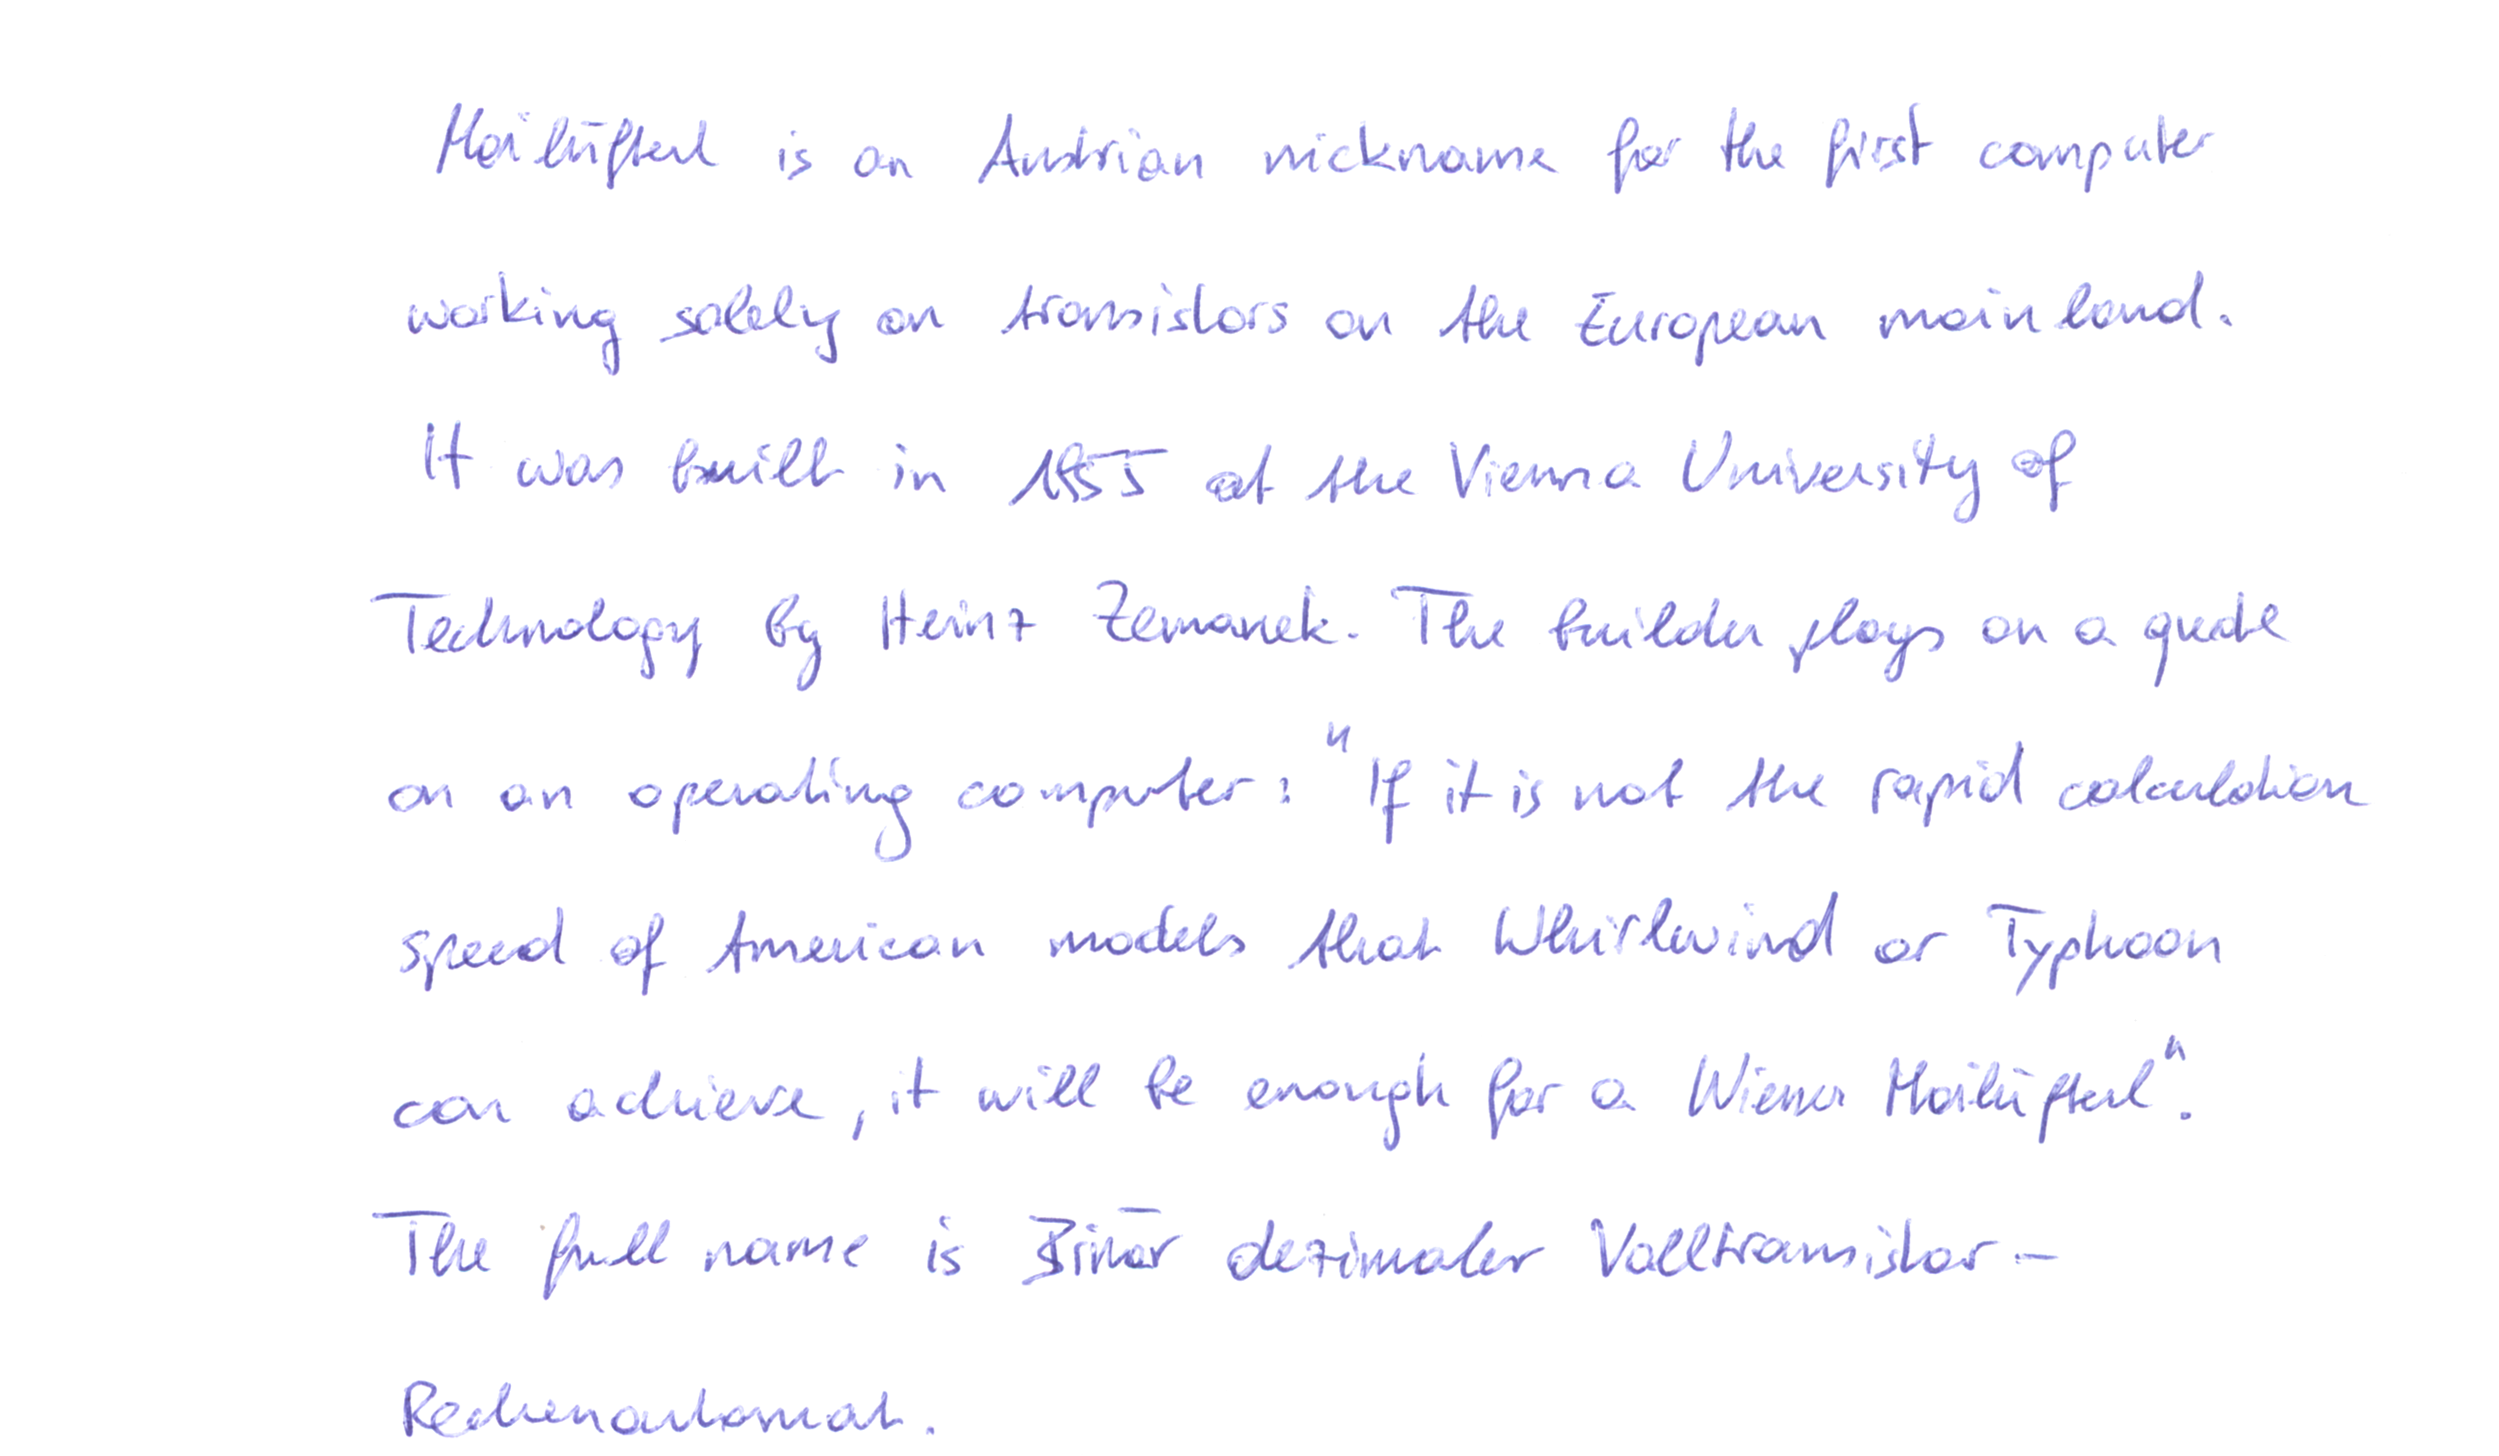 Mailüfterl is an Austrian nickname for the first computer
working solely on transistors on the European mainland.
It was built in 1955 at the Vienna University of
Technology by Heinz Zemanek. The builder plays on a quote
on an operating computer: "If it is not the rapid calculation
speed of American models that Whirlwind or Typhoon
can achieve, it will be enough for a Wiener Mailüfterl".
The full name is Binär dezimaler Volltransistor-
Rechenautomat.